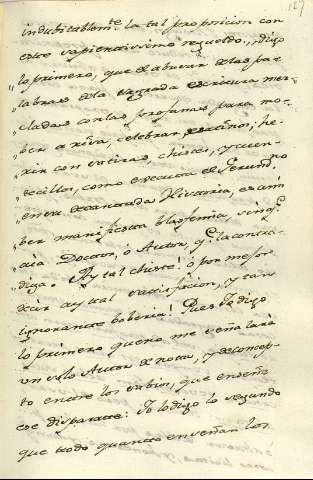 127
indubitablem.te la tal proposicion con
este sapientissimo regueldo,, Digo
,, lo primero, que el abusar de las pa-
,, labras de la sagrada escritura mez-
,, cladas con las profanas para mo-
,, ber a risa, celebrar desatinos; he-
,, rir con satiras, chistes, y cuen-
,, tecillos, como executa el Gerund.no
,, en su Historia, es a mi
,, ber manifiesta blasfemia, sin q.e
,, aia Doctor, ò Autor, q.e la contra-
,, diga. Ay tal chiste! ò por mejor
decir ay tal satisfacion, y tan
ignorante boberia! Pues Yo digo
lo primero que no me señalarà
un solo Autor de nota, y de concep-
to entre los sabios, que enseñe
ese disparate: Yo lo digo lo segundo
que todo quanto enseñan los